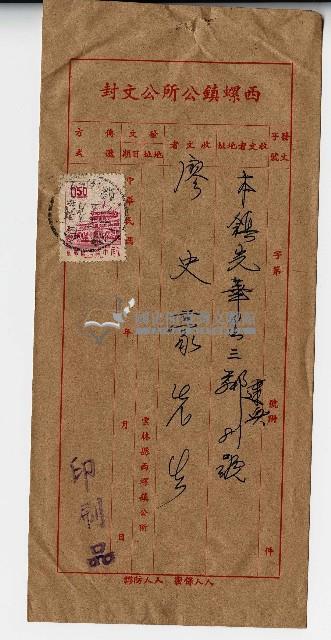 西螺鎮公所公文封
發文
字號
收文者地址
收文者
發文
地址日期
傳遞
方式
字第
號附
件
本鎮先華里三鄰
建興
號
廖史豪先生
雲林縣西螺鎮公所
中華民國
年
月
日
0.50
印刷品
人人保密 人人防諜